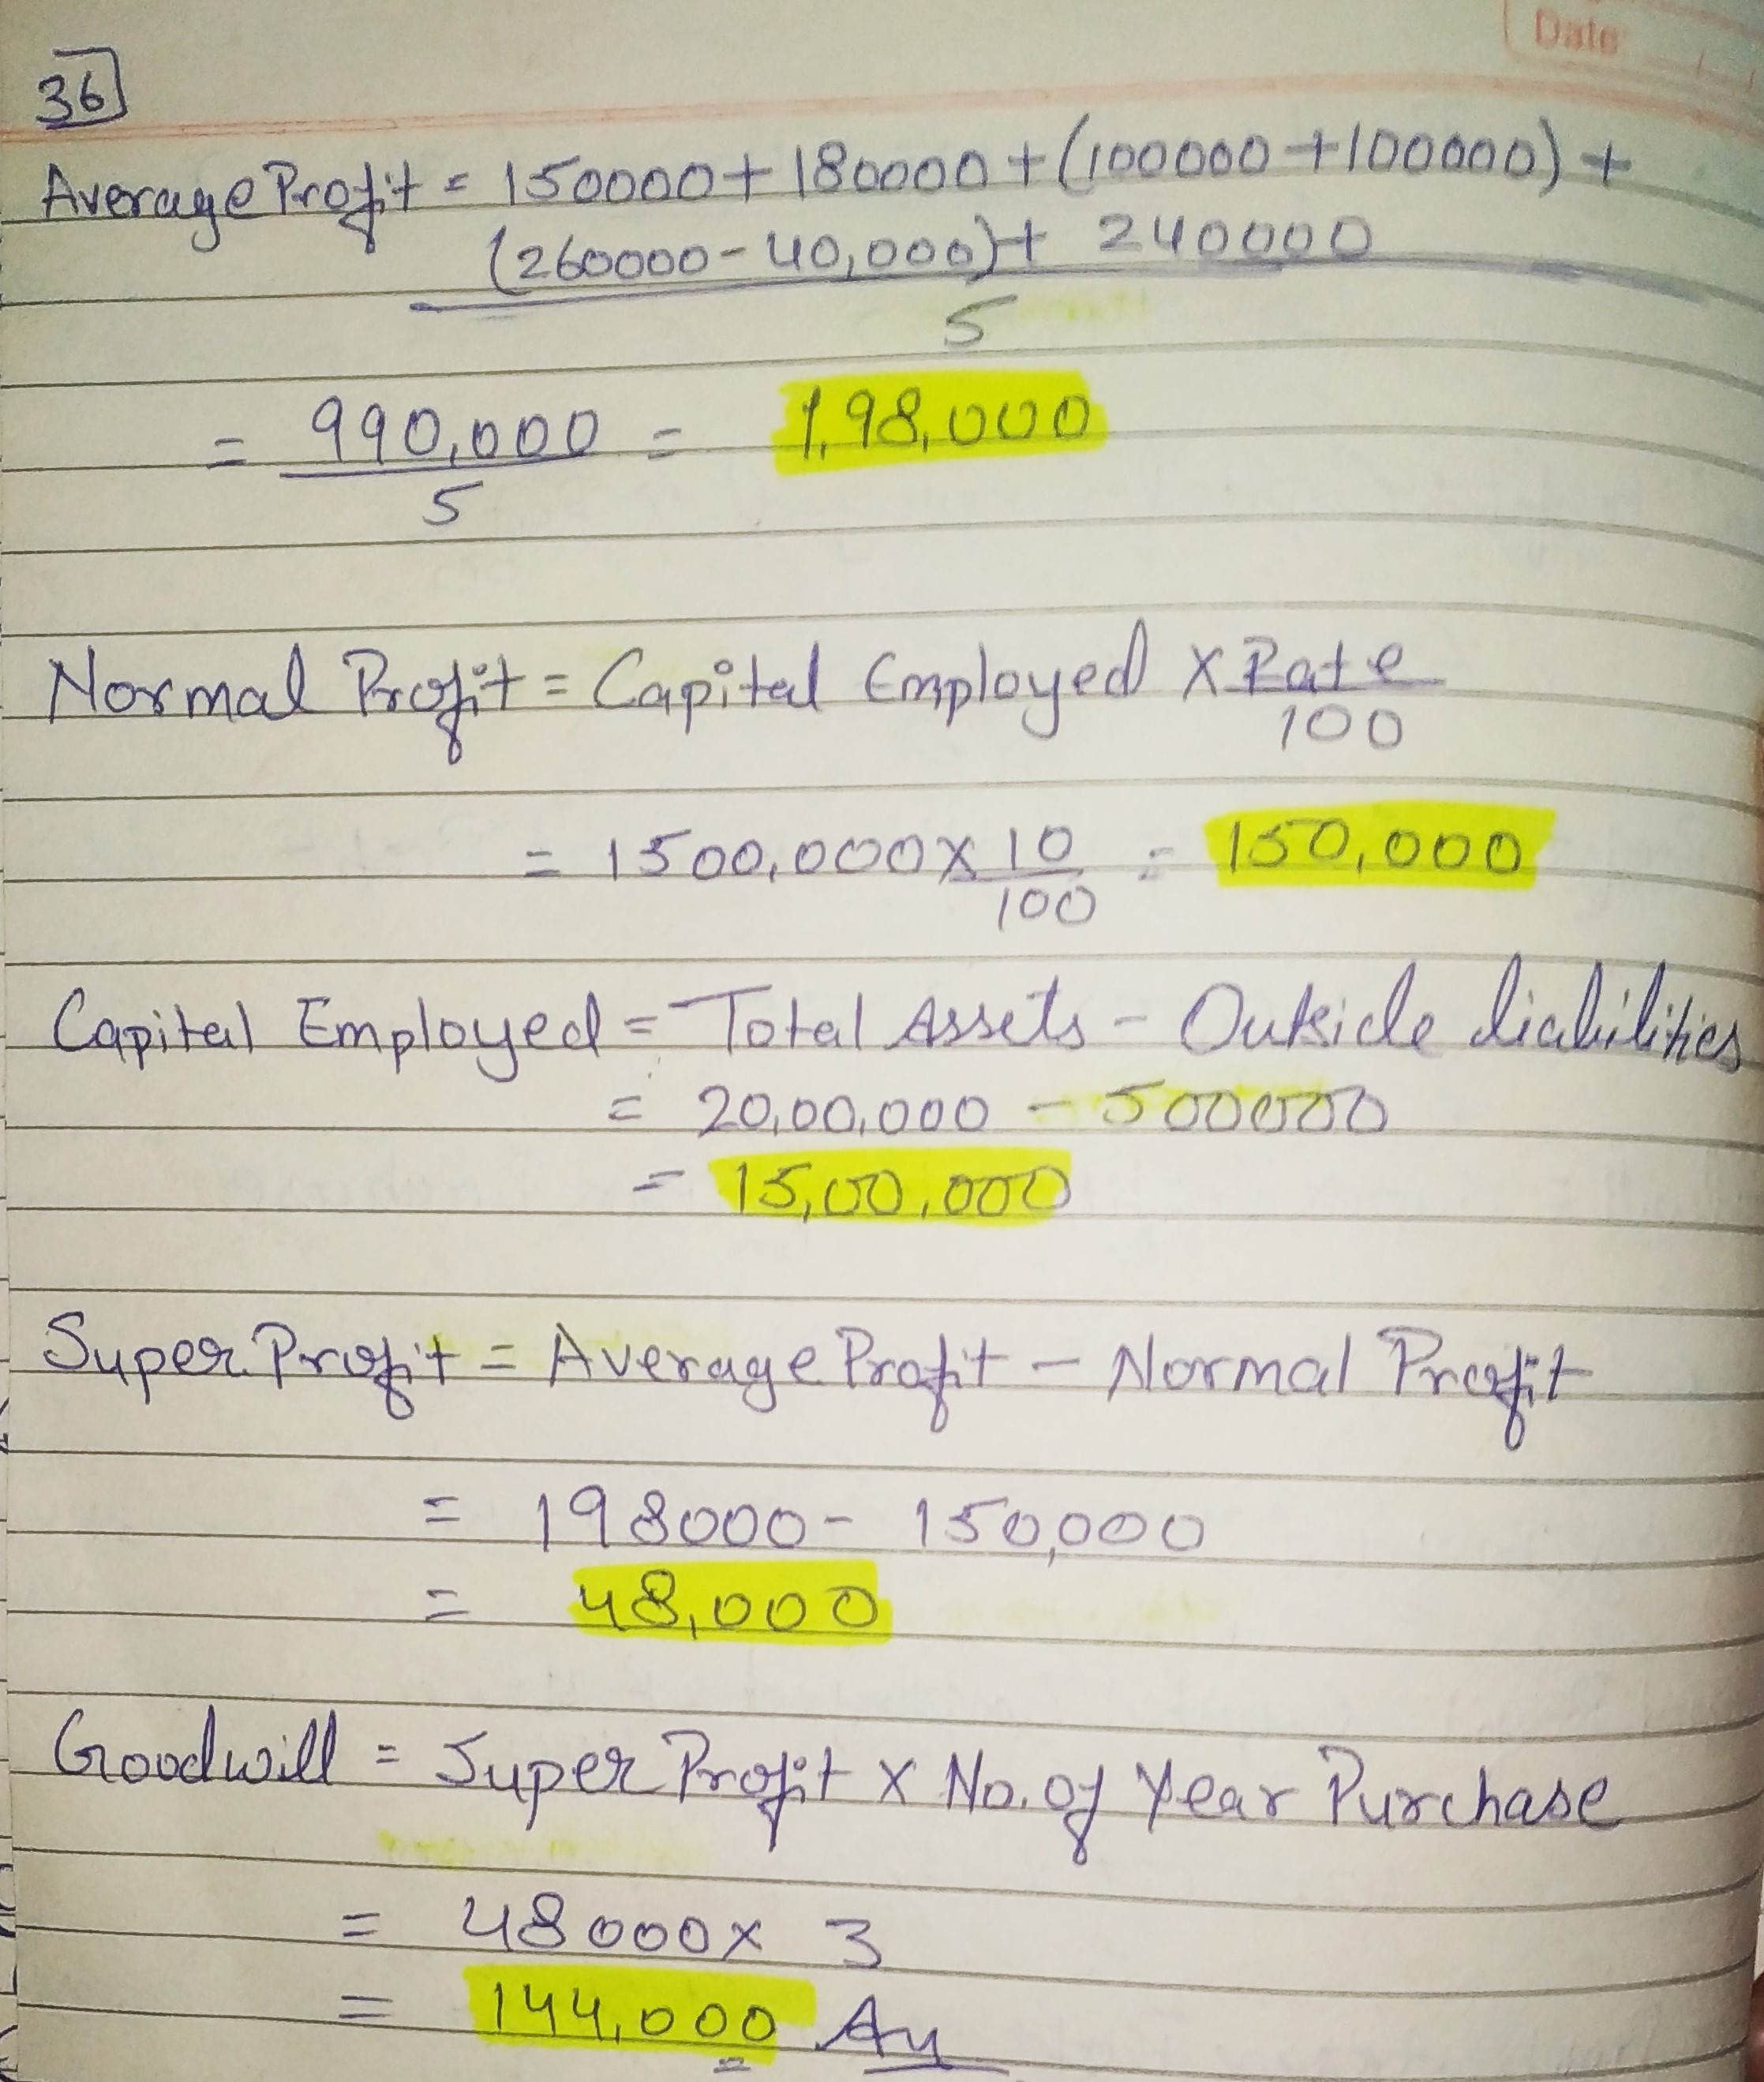 Date
36
Average Profit = 150000 + 180000 + (100000 + 100000) +
(260000 - 40,000) + 240000
5
= 990,000 = 1,98,000
5
Normal Profit = Capital Employed X Rate
100
= 1500,000 X 10 = 150,000
100
Capital Employed = Total Assets - Outside liabilities
= 20,00,000 - 500000
= 15,00,000
Super Profit = Average Profit - Normal Profit
= 198000 - 150,000
= 48,000
Goodwill = Super Profit X No. of Year Purchase
= 48000 x 3
= 144,000